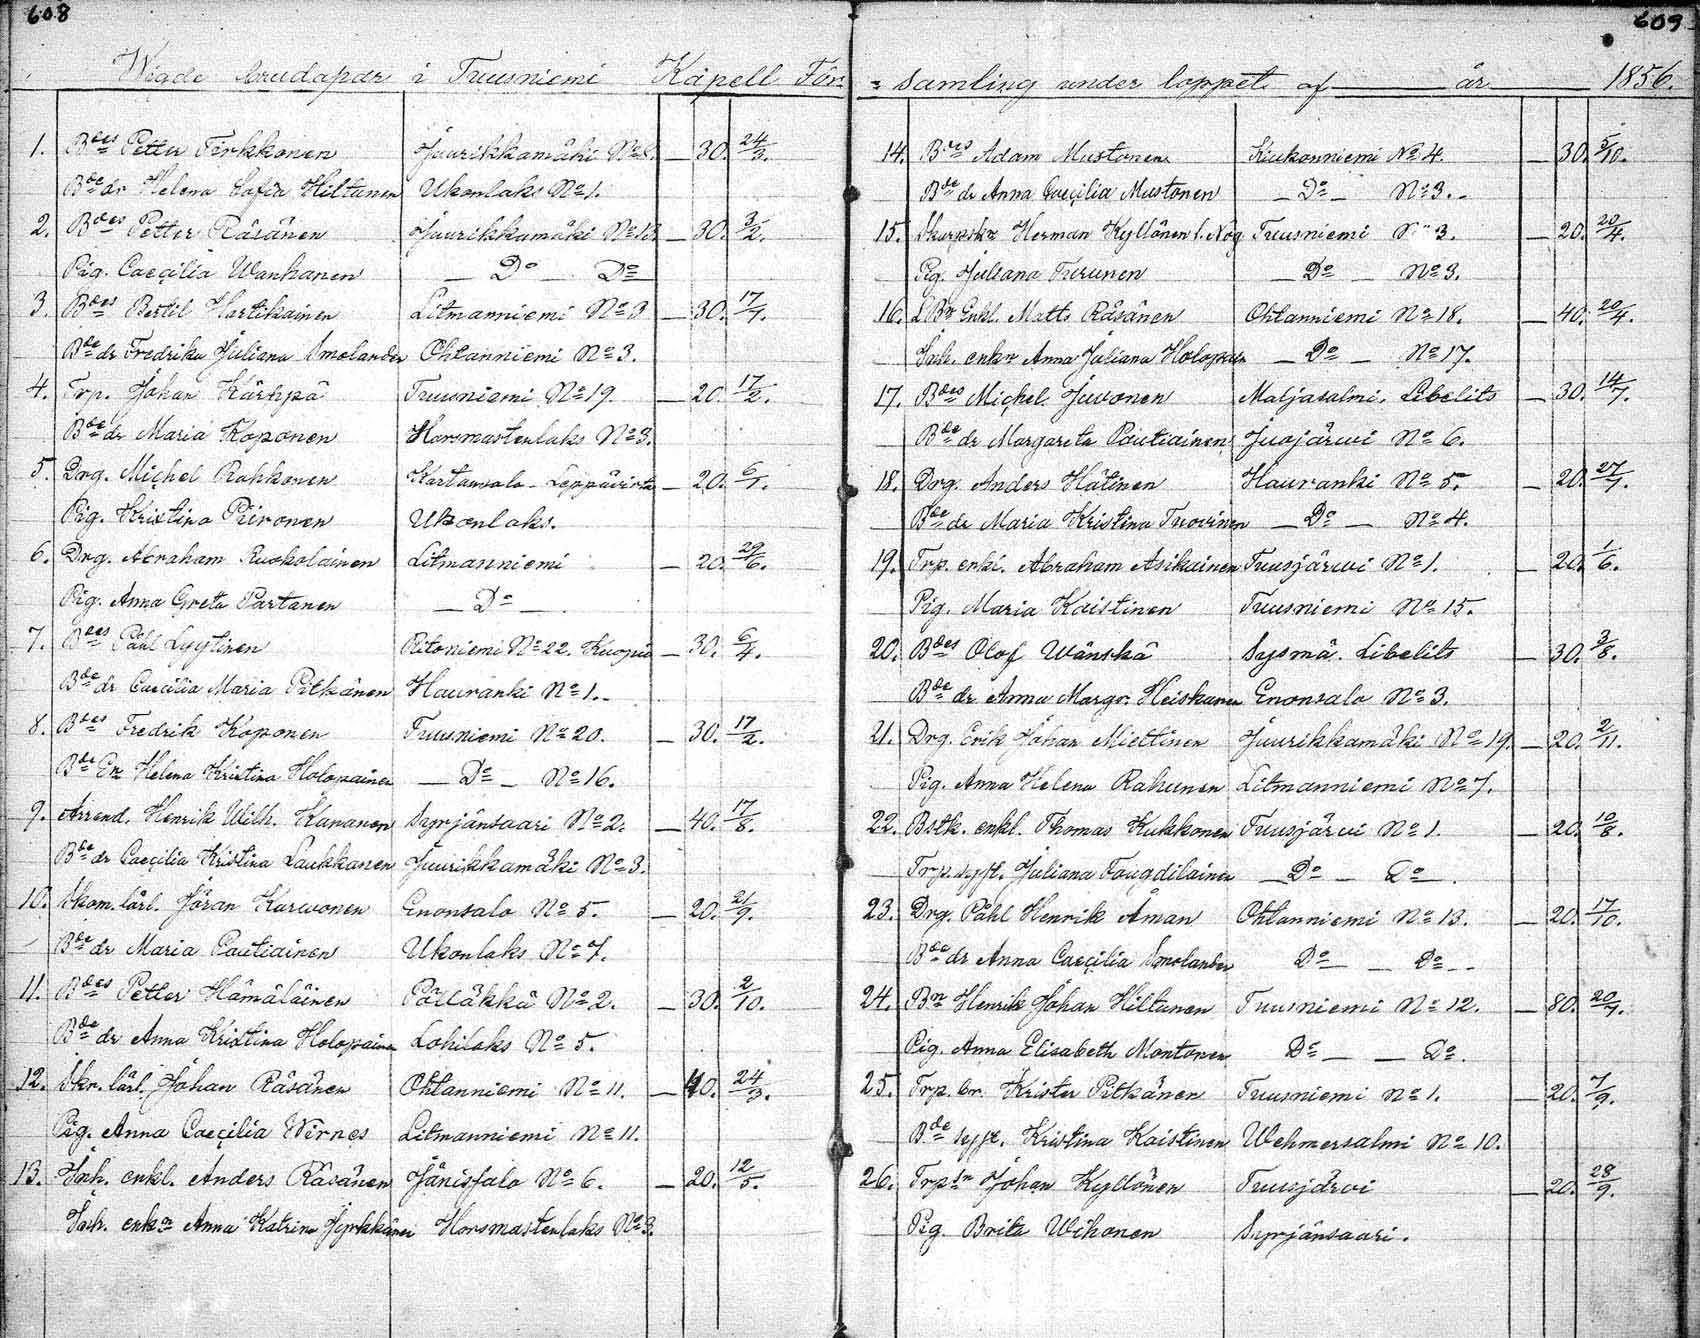 608
Wigde brudapar i Tuusniemi Kapell För
1. Bdes Petter Tirkkonen Juurikkamäki — 30. 24/3.
Bde dr Helena Sofia Hiltunen Ukonlaks No 1.
2. Bdes Petter Räsänen Juurikkamäki No 13 — 30. 3/2.
Pig. Caeçilia Wanhanen — Do — Do
3. Bdes Bertil Hartikainen Litmanniemi No 3 — 30. 17/7.
Bde dr Fredrika Juliana Smolander Ohtanniemi No 3.
4. Trp. Johan Kärhpä Tuusniemi No 19. — 20. 17/2.
Bde dr Maria Koponen Horsmastenlaks No 3.
5. Drg. Miçhel Rahkonen Kartansalo - Leppävirta — 20. 6/7.
Pig. Kristina Piironen Ukonlaks.
6. Drg. Abraham Ruokolainen Litmanniemi — 20. 29/6.
Pig. Anna Greta Partanen — Do —
7. Bdes Påhl Lyytinen Ritoniemi No 22. Kuopio — 30. 6/4.
Bde dr Caecilia Maria Pitkänen Hauranki No 1.
8. Bdes Fredrik Koponen Tuusniemi No 20. — 30. 17/2.
Bde En Helena Kristina Holopainen — Do — No 16.
9. Arrend. Henrik Wilh. Kananen Syrjänsaari No 2. — 40. 17/8.
Bde dr Caeçilia Kristina Laukkanen Juurikkamäki No 3.
10. Skom. lärl. Jöran Karwonen Enonsalo No 5. — 20. 21/9.
— Bde dr Maria Pautiainen Ukonlaks No 7.
11. Bdes Petter Hämäläinen Pölläkkä No 2. — 30. 2/10.
Bde dr Anna Kristina Holopainen Lohilaks No 5.
12. Skr. lärl. Johan Räsänen Ohtanniemi No 11. — 40. 24/3.
Pig. Anna Caeçilia Wirnes Litmanniemi No 11.
13. Inh. enkl. Anders Räsänen Jänissalo No 6. — 20. 12/5.
Inh. enka Anna Katrina Jyrkkänen Horsmastenlaks No 3.
609
= samling under loppet af — år — 1856.
14. Bdes Adam Mustonen Kiukonniemi No 4. — 30. 5/10.
Bde dr Anna Caeçilia Mustonen — Do — No 3.
15. Herman Kyllönen Tuusniemi No 3. — 20. 20/4.
Pig. Juliana Turunen — Do — No 3.
16. Enkl. Matts Räsänen Ohtanniemi No 18. — 40. 20/4.
Inh. enka Anna Juliana Holopain — Do — No 17.
17. Bdes Miçhel Juvonen Maljasalmi. Libelits — 30. 14/7.
Bde dr Margareta Pautiainen Juojärwi No 6.
18. Drg. Anders Hätinen Hauranki No 5. — 20. 27/7.
Bde dr Maria Kristina Tuovinen — Do — No 4.
19. Trp. enkl. Abraham Asikainen Tuusjärwi No 1. — 20. 1/6.
Pig. Maria Kaistinen Tuusniemi No 15.
20. Bdes Olof Wänskä Sysmä. Libelits — 30. 3/8.
Bde dr Anna Margr. Heiskanen Enonsalo No 3.
21. Drg. Erik Johan Miettinen Juurikkamäki No 19. — 20. 2/11.
Pig. Anna Helena Rahunen Litmanniemi No 7.
22. Bstk. enkl. Thomas Kukkonen Tuusjärwi No 1. — 20. 10/8.
Trp. syst. Juliana Fougdilainen — Do — Do —.
23. Drg. Påhl Henrik Åman Ohtanniemi No 13. — 20. 17/10.
Bde dr Anna Caeçilia Smolander Do — — Do —
24. Bn Henrik Johan Hiltunen Tuusniemi No 12. — 80. 20/7.
Pig. Anna Elisabeth Montonen Do — — Do.
25. Trp. br. Krister Pitkänen Tuusniemi No 1. — 20. 7/9.
Bde syst. Kristina Kaistinen Wehmersalmi No 10.
26. Trpsn Johan Kyllönen Tuusjärwi — 20. 28/9.
Pig. Brita Wihonen Syrjänsaari.